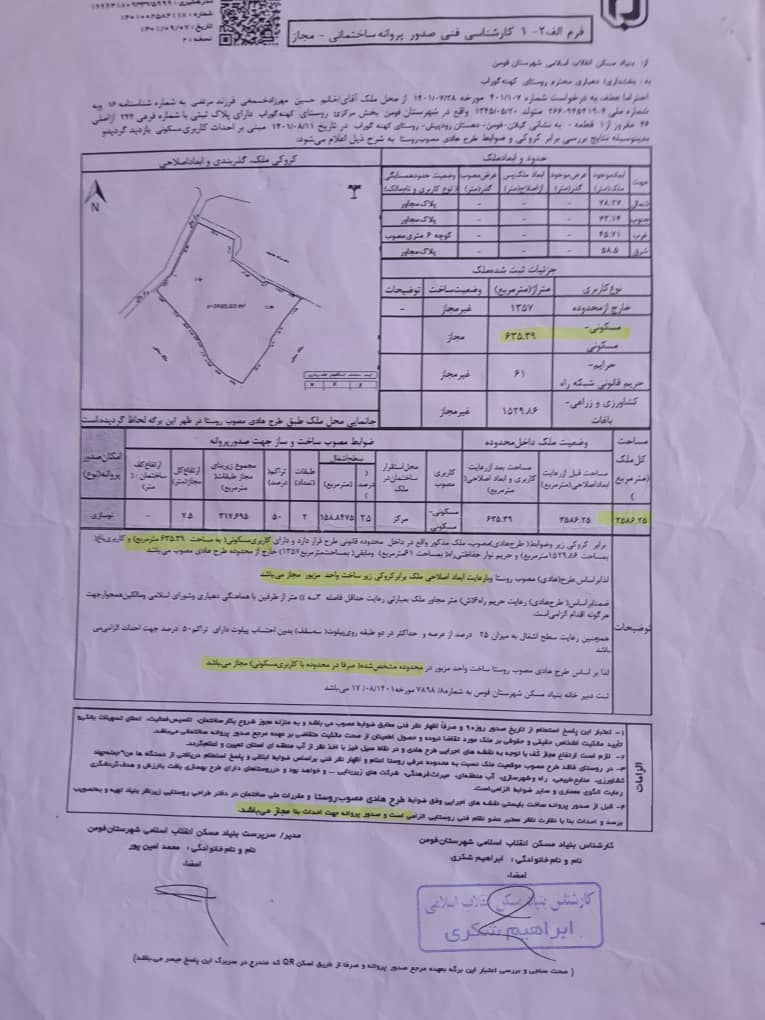 شماره: ۱۴۰۱۰۰۲۵۸۴۱۱۸
تاریخ: ۱۴۰۱/۰۹/۰۷
نسخه: ۲
فرم الف۲- ۱ کارشناسی فنی صدور پروانه ساختمانی - مجاز
از: بنیاد مسکن انقلاب اسلامی شهرستان فومن
به: بخشداری/ دهیاری محترم روستای کهنه گوراب
احتراما عطف به درخواست شماره ۴۰۱/۱۰۷ مورخه ۱۴۰۱/۰۷/۲۸ از محل ملک آقای/خانم حسین مهرزادخسمخی فرزند مرتضی به شماره شناسنامه ۱۶ و به
شماره ملی ۲۶۶۰۹۴۵۴۱۹۰۴ متولد ۱۳۴۵/۰۵/۲۰ واقع در شهرستان فومن بخش مرکزی روستای کهنه گوراب دارای پلاک ثبتی با شماره فرعی ۲۴۴ ازاصلی
۴۶ مفروز از۱ قطعه - به نشانی گیلان-فومن-دهستان رودپیش- روستای کهنه گوراب در تاریخ ۱۴۰۱/۰۸/۱۱ مبنی بر احداث کاربری مسکونی بازدید گردیدو
بدینوسیله نتایج بررسی برابر کروکی و ضوابط طرح هادی مصوب روستا به شرح ذیل اعلام می‌شود:
حدود و ابعاد ملک
جهت ابعاد موجود ملک (متر) عرض موجود گذر (متر) ابعاد ملک پس از اصلاح (متر) عرض مصوب گذر (متر) وضعیت حدود همسایگی ( نوع کاربری و نام مالک)
شمال ۷۸.۲۷ - - - پلاک مجاور
جنوب ۴۲.۱۴ - - - پلاک مجاور
غرب ۴۵.۷۱ - - - کوچه ۶ متری مصوب
شرق ۵۸.۵ - - - پلاک مجاور
جزئیات ثبت شده ملک
نوع کاربری متراژ(مترمربع) وضعیت ساخت توضیحات
خارج از محدوده ۱۳۵۷ غیر مجاز -
مسکونی- مسکونی ۶۳۵.۳۹ مجاز
حرایم- حریم قانونی شبکه راه ۶۱ غیرمجاز
کشاورزی و زراعی- باغات ۱۵۲۹.۸۶ غیرمجاز
کروکی ملک، گذربندی و ابعاد اصلاحی
N
جانمایی محل ملک طبق طرح هادی مصوب روستا در ظهر این برگه لحاظ گردیده است
مساحت کل ملک (مترمربع) وضعیت ملک داخل محدوده ضوابط مصوب ساخت و ساز جهت صدور پروانه امکان صدور پروانه (نوع)
مساحت قبل از رعایت ابعاد اصلاحی(مترمربع) مساحت بعد از رعایت کاربری و ابعاد اصلاحی( مترمربع) کاربری مصوب محل استقرار ساختمان در ملک سطح اشغال (درصد) (مترمربع) طبقات (تعداد) تراکم( درصد) مجموع زیربنای مجاز طبقات( مترمربع) ارتفاع کل مجاز(متر) ارتفاع کف ساختمان : ( متر)
۳۵۸۶.۲۵ ۳۵۸۶.۲۵ ۶۳۵.۳۹ مسکونی- مسکونی مرکز ۲۵ ۱۵۸.۸۴۷۵ ۲ ۵۰ ۳۱۷.۶۹۵ ۷.۵ - نوسازی
توضیحات
برابر کروکی زیر وضوابط( طرح هادی)مصوب، ملک مذکور واقع در داخل محدوده قانونی طرح قرار دارد و دارای کاربری مسکونی( به مساحت ۶۳۵.۳۹مترمربع) و کاربری باغ(
بمساحت ۱۵۲۹.۸۶مترمربع) و حریم نوار حفاظتی راه( بمساحت ۶۱مترمربع) ومابقی( بمساحت۱۳۵۷مترمربع) خارج از محدوده طرح هادی مصوب می‌باشد
لذابر اساس طرح(هادی) مصوب روستا وبا رعایت ابعاد اصلاحی ملک برابر کروکی زیر ساخت واحد مزبور مجاز می‌باشد
همچنین رعایت سطح اشغال به میزان ۲۵ درصد از عرصه و حداکثر در دو طبقه روی پیلوت( سه سقف) بدون احتساب پیلوت دارای تراکم۵۰ درصد جهت احداث الزامی می
باشد
لذا بر اساس طرح هادی مصوب روستا ساخت واحد مزبور در محدوده مشخص شده( صرفا در محدوده با کاربری مسکونی) مجاز می‌باشد.
ثبت دبیر خانه بنیاد مسکن شهرستان فومن به شماره۷۸۹۸/۸ مورخه۱۷/۰۸/۱۴۰۱ می باشد
الزامات
۱- اعتبار این پاسخ استعلام از تاریخ صدور ۹۰روز و صرفا اظهار نظر فنی مطابق ضوابط مصوب می باشد و به منزله مجوز شروع بکار ساختمان، تاسیس فعالیت، اعطای تسهیلات بانکی و
تأیید مالکیت اشخاص حقیقی و حقوقی بر ملک مورد تقاضا نبوده و حصول اطمینان از صحت مالکیت متقاضی بر عهده مرجع صدور پروانه ساختمانی می‌باشد.
۲- لازم است ارتفاع مجاز کف با توجه به نقشه های اجرایی طرح هادی و در نقاط سیل خیز با اخذ نظر از آب منطقه ای استان تعیین و اعلام گردد.
رعایت الگوی معماری و سایر ضوابط الزامی است.
۴- قبل از صدور پروانه ساخت بایستی نقشه های اجرایی وفق ضوابط طرح هادی مصوب روستا و مقررات ملی ساختمان در دفتر طراحی روستایی زیر نظر بنیاد تهیه و به تصویب
برسد و احداث بنا با نظارت ناظر معتبر عضو نظام فنی روستایی الزامی است و صدور پروانه جهت احداث بنا مجاز می‌باشد.
کارشناس بنیاد مسکن انقلاب اسلامی شهرستان فومن
نام و نام خانوادگی : ابراهیم شکری
امضاء
مدیر/ سرپرست بنیاد مسکن انقلاب اسلامی شهرستان فومن
نام و نام خانوادگی : محمد امین پور
امضاء
کارشناس بنیاد مسکن انقلاب اسلامی
ابراهیم شکری
( صحت سنجی و بررسی اعتبار این برگه بعهده مرجع صدور پروانه و صرفا از طریق اسکن QR کد مندرج در سربرگ این پاسخ میسر می‌باشد)